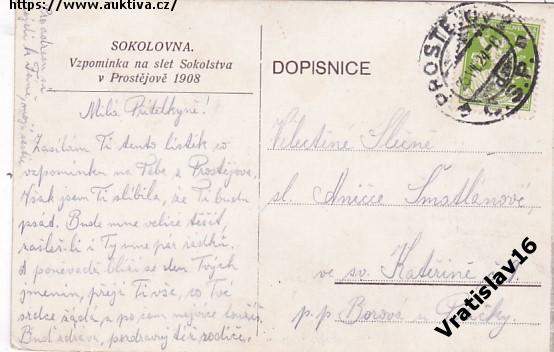 https://www.auktiva.cz/
SOKOLOVNA.
Vzpomínka na slet Sokolstva
v Prostějově 1908
DOPISNICE
PROSTĚJOV
Milá Přítelkyně!
Zasílám Ti tento lístek co
vzpomínku na Tebe z Prostějova.
Však jsem Ti slíbila, že Ti budu
psáti. Bude mne velice těšit
zašleš-li i Ty mne par řádků.
A poněvadč blíží se den Tvých
jmenin, přeji Ti vše, co Tvé
srdce žádá a po čem nejvíce toužíš.
Buď zdráva, pozdravuj též rodiče.
Velectěné Slečně
sl. Aničce Šmatlanové,
ve sv. Kateřině
p. p. Borová u Poličky
Vratislav16